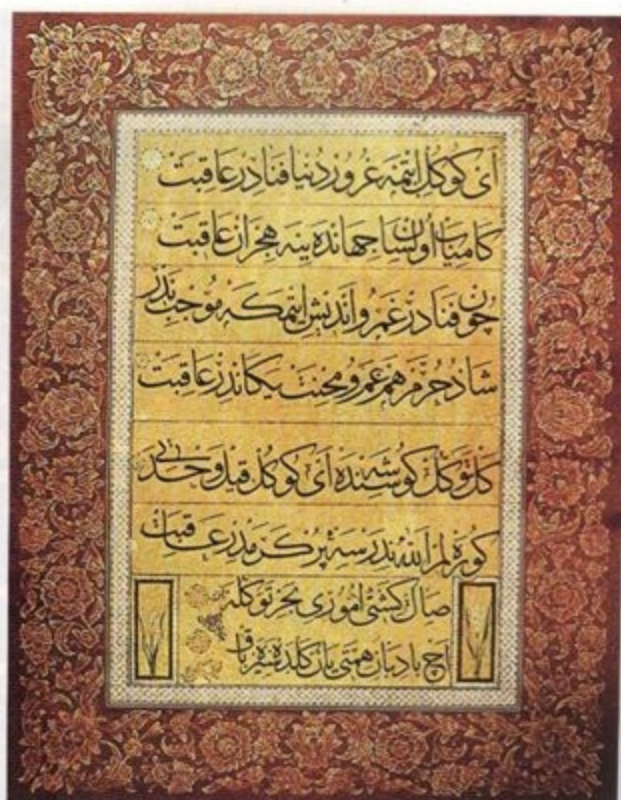 ای كوكل ایتمه غرور دنیا فنادر عاقبت
كامیاب اولسان جهانده ینه هجران عاقبت
چون فنادر غم و اندیش ایتمكه موجب ندر
شاد خرم هم غم و محنت یكاندر عاقبت
كل توكل كوشه سنده ای كوكل قیل
كوره لم الله ندرسه پر كرمدر عاقبت
صال كشتی اموری بحر توكله
آچ بادبان همتی باق